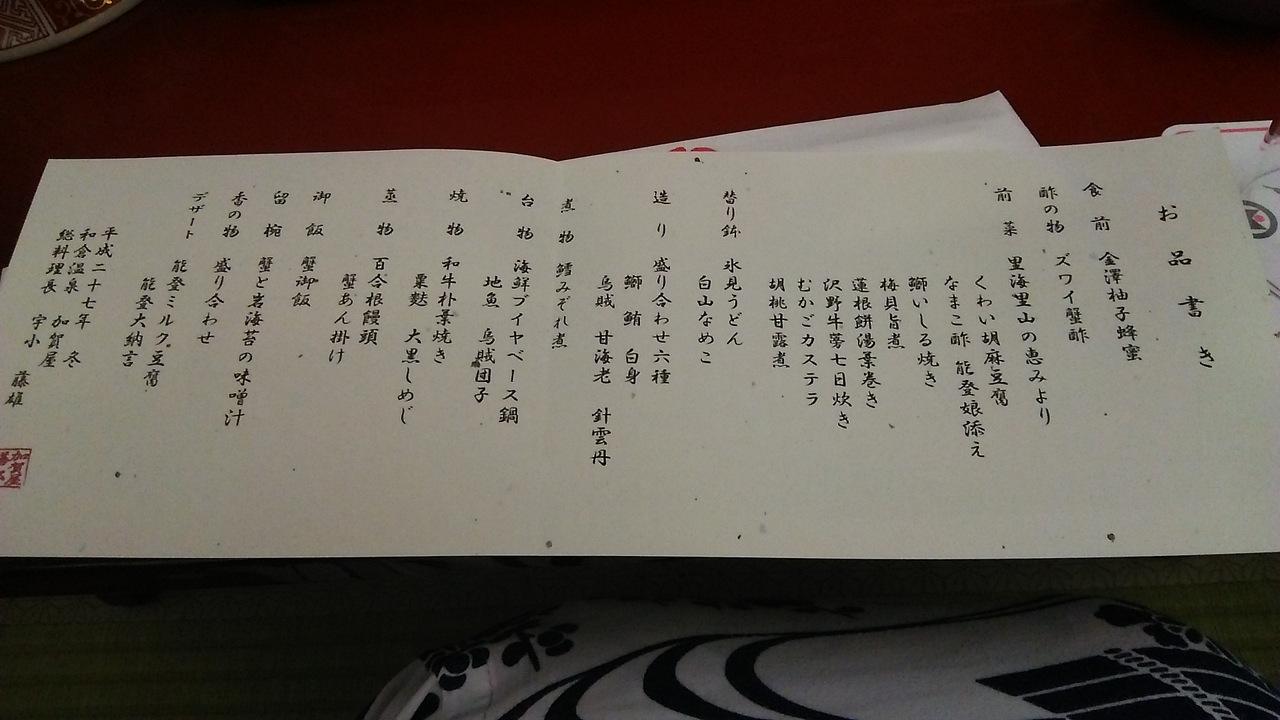 お品書き
食前 金澤柚子蜂蜜
酢の物 ズワイ蟹酢
前菜 里海里山の恵みより
くわい胡麻豆腐
なまこ酢 能登娘添え
鰤いしる焼き
梅貝旨煮
蓮根餅湯葉巻き
沢野牛蒡七日炊き
むかごカステラ
胡桃甘露煮
替り鉢 氷見うどん
白山なめこ
造り 盛り合わせ六種
鰤 鮪 白身
烏賊 甘海老 針雲丹
煮物 鱈みぞれ煮
台物 海鮮ブイヤベース鍋
地魚 烏賊団子
焼物 和牛朴葉焼き
粟麩 大黒しめじ
蒸物 百合根饅頭
蟹あん掛け
御飯 蟹御飯
留椀 蟹と岩海苔の味噌汁
香の物 盛り合わせ
デザート 能登ミルク豆腐
能登大納言
平成二十七年 冬
和倉温泉 加賀屋
総料理長 宇小 藤雄
加賀屋